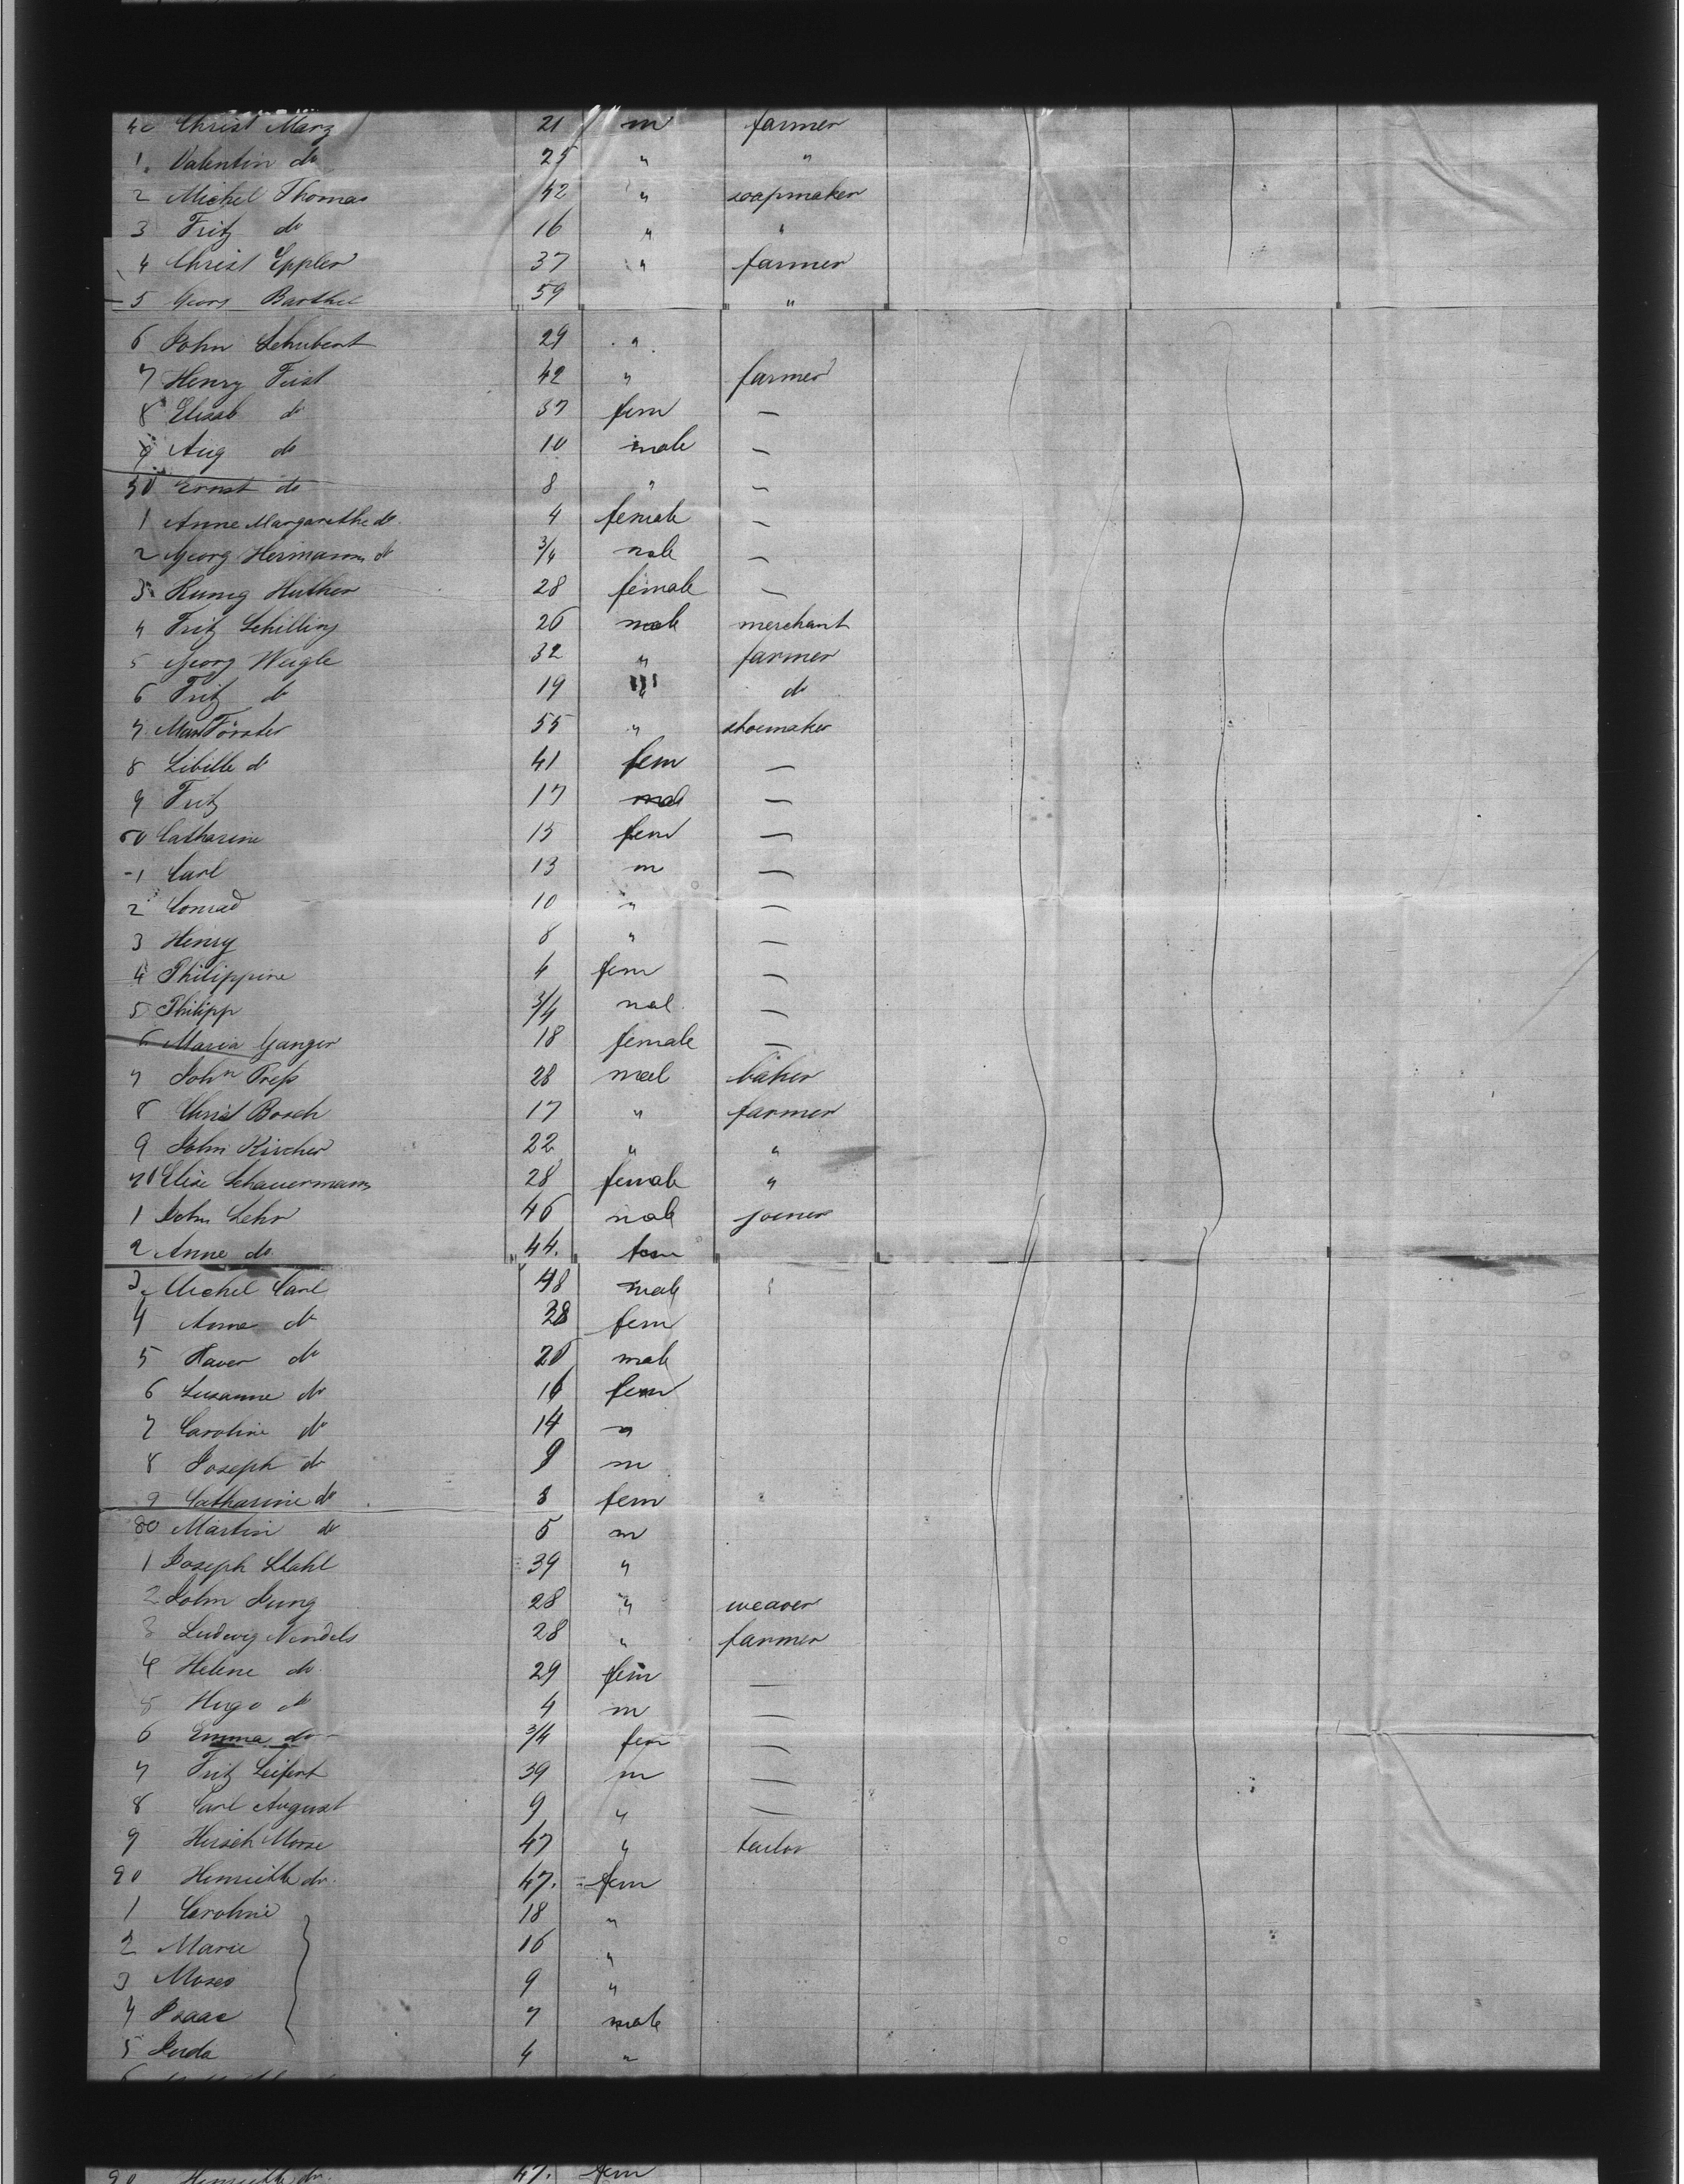 40 Christ Marz 21 m farmer
1. Valentin do 25 " "
2 Michel Thomas 42 " soapmaker
3 Fritz do 16 " "
4 Christ Eppler 37 " farmer
5 Georg Barthel 59 "
6 John Schubert 29 "
7 Henry Feist 42 " farmer
8 Elisab do 37 fem —
9 Aug do 10 male —
50 Ernst do 8 " —
1 Anne Margarethe do. 4 female —
2 Georg Hermann do 3/4 male —
3 Kunig Huther 28 female —
4 Fritz Schilling 26 male merchant
5 Georg Weigle 32 " farmer
6 Fritz do 19 " do
7 Förster 55 " shoemaker
8 Sibille do 41 fem —
9 Fritz 17 male —
60 Catharine 15 fem —
1 Carl 13 m —
2 Conrad 10 " —
3 Henry 8 " —
4 Philippine 4 fem —
5 Philipp 3/4 mal —
6 Maria Ganger 18 female —
7 John Press 28 mael baker
8 Christ Bosch 17 " farmer
9 John Kircher 22 " "
70 Elise Schauermann 28 female "
1 John Lehr 46 male joener
2 Anne do 44. fem
3 Michel Carl 48 male
4 Anne do 38 fem
5 Xaver do 20 male
6 Susanne do 16 fem
7 Caroline do 14 "
8 Joseph do 9 m
9 Catharine do 8 fem
80 Martin do 5 m
1 Joseph Stahl 39 "
2 John Jung 28 " weaver
3 Ludwig Nendels 28 " farmer
4 Helene do 29 fem —
5 Hugo do 4 m —
6 Emma do 3/4 fem —
7 Fritz Seifert 39 m —
8 Carl August 9 " —
9 Hirsch Morse 47 " taylor
90 Henriette do. 47. fem
1 Caroline 18 "
2 Marie 16 "
3 Moses 9 "
4 Isaac 7 male
5 Juda 4 "
90 Henriette do. 47. fem